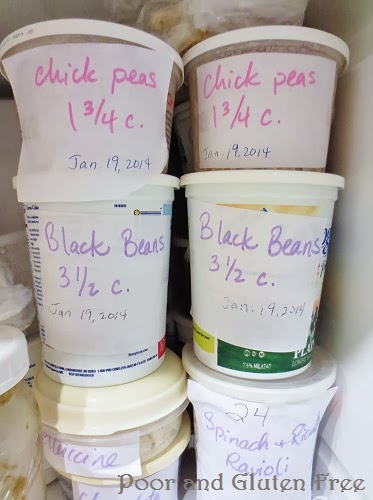 chick peas
1 3/4 c.
Jan. 19, 2014
chick peas
1 3/4 c.
Jan. 19, 2014
Black Beans
3 1/2 c.
Jan 19, 2014
Black Beans
3 1/2 c.
Jan. 19, 2014
24
Spinach +
Ravioli
Poor and Gluten Free